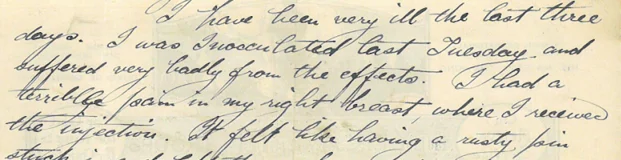 I have been very ill the last three
days. I was Innosculated last Tuesday and
suffered very badly from the effects. I had a
terriblbe pain in my right breast, where I received
the injection. It felt like having a rusty pin
stuck in